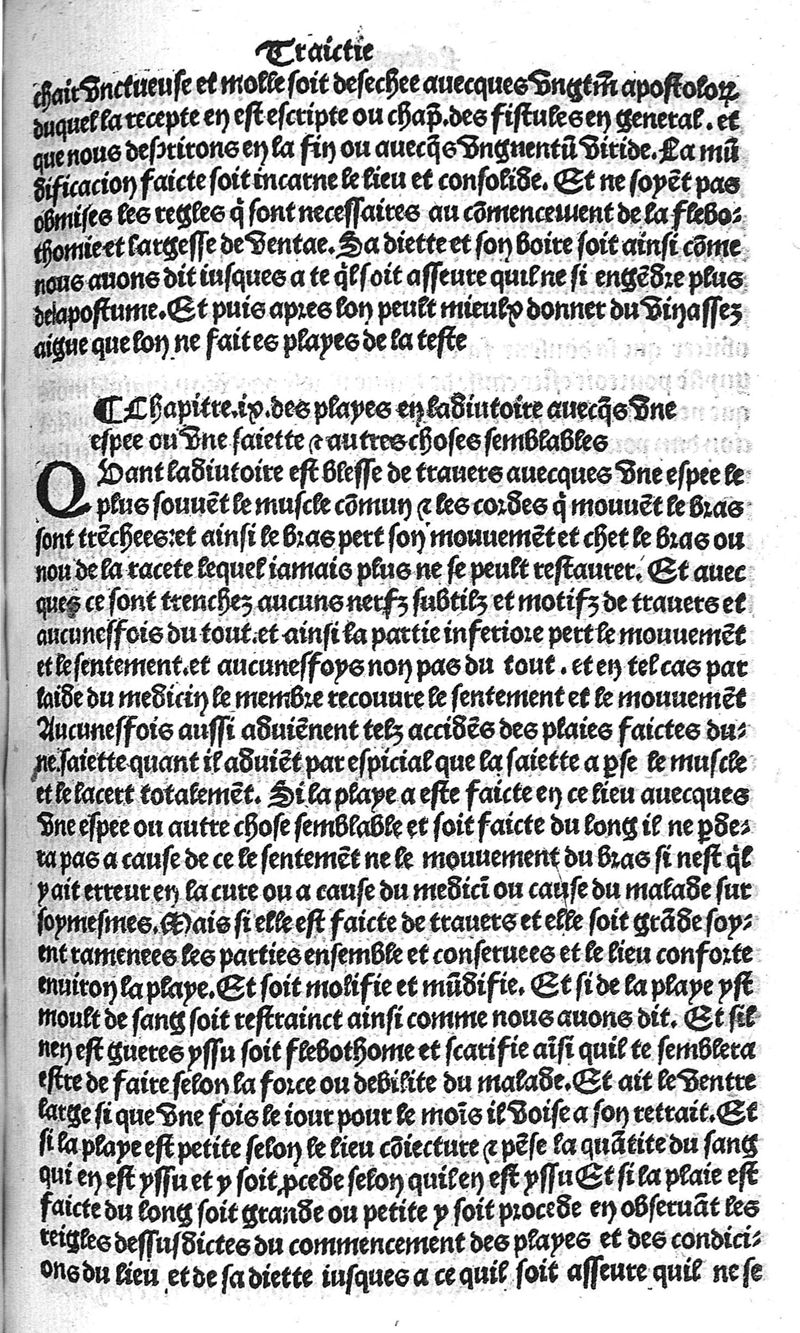 Traictie
chair vnctueuse et molle soit desechee auecques vngtm̃ apostoloꝝ
duquel la recepte en est escripte ou chap̃. des fistules en general. et
que nous descrirons en la fin ou auecq̃s vnguentũ viride. La mũ
dificacion faicte soit incarne le lieu et consolide. Et ne soyẽt pas
obmises les regles q̃ sont necessaires au cõmencement de la flebo⸗
thomie et largesse de ventae. Sa diette et son boire soit ainsi cõme
nous auons dit iusques a te q̃l soit asseure quil ne si engẽdre plus
delapostume. Et puis apres lon peult mieulx donner du vin assez
aigue que lon ne fait es playes de la teste
¶ Chapitre .ix. des playes en ladiutoire auecq̃s vne
espee ou vne saiette ⁊ autres choses semblables
QVant ladiutoire est blesse de trauers auecques vne espee le
plus souuẽt le muscle cõmun ⁊ les cordes q̃ mouuẽt le bras
sont trẽchees: et ainsi le bras pert son mouuemẽt et chet le bras ou
nou de la racete lequel iamais plus ne se peult restaurer. Et auec
ques ce sont trenchez aucuns nerfz subtilz et motifz de trauers et
aucuneffois du tout. et ainsi la partie inferiore pert le mouuemẽt
et le sentement. et aucuneffoys non pas du tout . et en tel cas par
laide du medicin le membre recouure le sentement et le mouuemẽt
Aucuneffois aussi aduiẽnent telz accidẽs des plaies faictes du⸗
ne saiette quant il aduiẽt par espicial que la saiette a ꝑse le muscle
et le lacert totalemẽt. Si la playe a este faicte en ce lieu auecques
vne espee ou autre chose semblable et soit faicte du long il ne ꝑde⸗
ra pas a cause de ce le sentemẽt ne le mouuement du bras si nest q̃l
y ait erreur en la cure ou a cause du medicĩ ou cause du malade sur
soymesmes. Mais si elle est faicte de trauers et elle soit grãde soy⸗
ent ramenees les parties ensemble et conseruees et le lieu conforte
enuiron la playe. Et soit molifie et mũdifie. Et si de la playe yst
moult de sang soit restrainct ainsi comme nous auons dit. Et sil
nen est gueres yssu soit flebothome et scarifie aĩsi quil te semblera
estre de faire selon la force ou debilite du malade. Et ait le ventre
large si que vne fois le iour pour le moĩs il voise a son retrait. Et
si la playe est petite selon le lieu cõiecture ⁊ pẽse la quãtite du sang
qui en est yssu et y soit ꝓcede selon quil en est yssu Et si la plaie est
faicte du long soit grande ou petite y soit procede en obseruãt les
reigles dessusdictes du commencement des playes et des condici⸗
ons du lieu et de sa diette iusques a ce quil soit asseure quil ne se